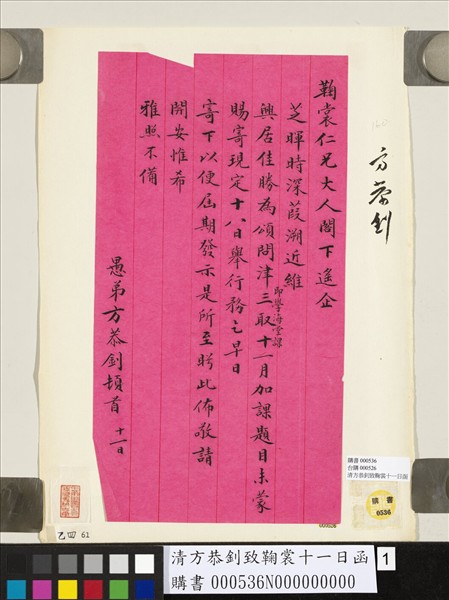 鞠裳仁兄大人閣下遙企
芝暉時深葭溯近維
興居佳勝為頌問津三取十一月加課題目未蒙
即學海堂課
賜寄現定十八日舉行務乞早日
寄下以便屆期發示是所至盼此佈敬請
開安惟希
雅照不備
愚弟方恭釗頓首 十一日
方恭釗
購書 000536
台購 000526
清方恭釗致鞠裳十一日函
購書
0536
000526
乙四 61
清方恭釗致鞠裳十一日函
購書 000536N000000000
1